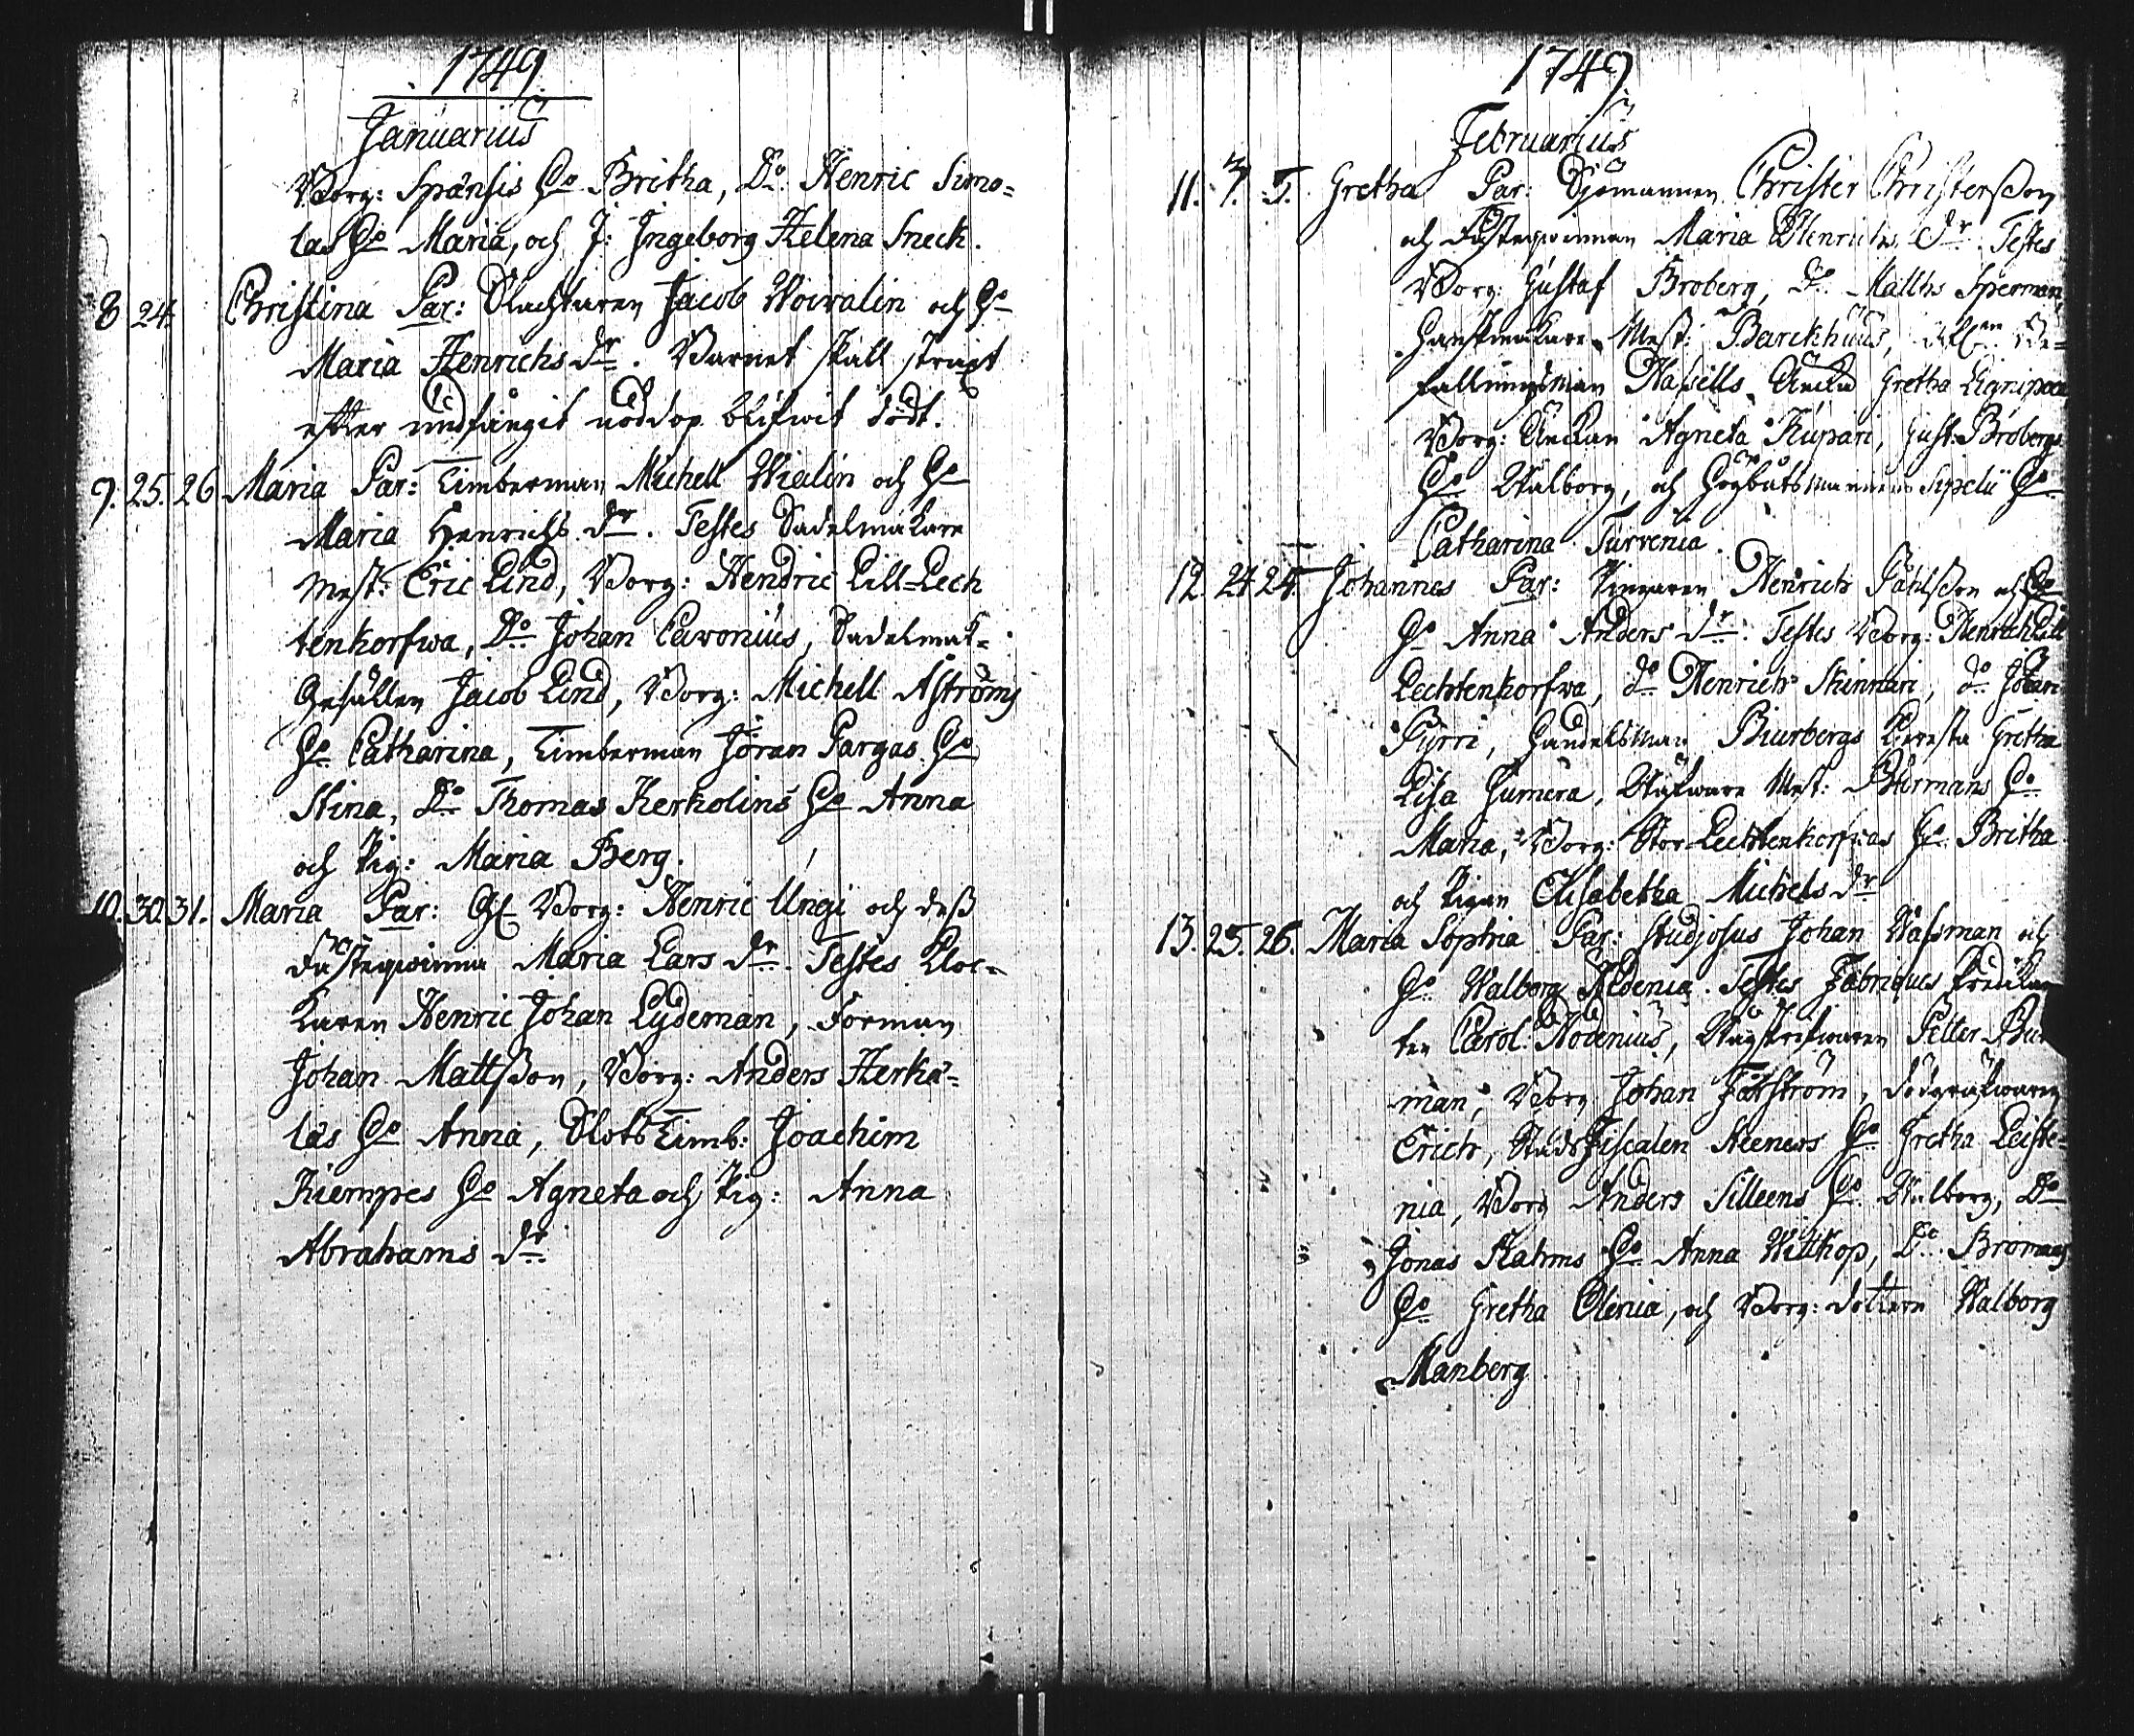 1749
Januarius
Borg: Spånsis H:o Britha, D:o Henric Simo=
las H:o Maria, och J: Ingeborg Helena Sneck.
8 24. Christina Par: Slachtaren Jacob Woivalin och H:o
Maria Henrichs d:r. Barnet skall straxt
efter undfångit nöddop blifwit dödt.
9. 25. 26 Maria Par: Timberman Michell Wialin och H:o
Maria Henrichs d:r. Testes Sadelmakare
Mest: Eric Lind, Borg: Hendric Lill-Lech
tenkorfwa, D:o Johan Cavonius, Sadelmak=
Gesällen Jacob Lind, Borg: Michell Aströms
H:o Catharina, Timberman Jöran Pargas H:o
Stina, D:o Thomas Kerkolins H:o Anna
och Pig: Maria Berg.
10. 30. 31. Maria Par: Gl Borg: Henric Ungi och dess
Fästeqwinna Maria Lars d:r. Testes Kloc=
karen Henric Johan Lydeman, Forman
Johan Mattsson, Borg: Anders Herka=
las H:o Anna, Slots Timb: Joachim
Kiempes H:o Agneta och Pig: Anna
Abrahams d:r
1749
Februarius
11. 3. 5. Gretha Par: Sjömannen Christer Christersson
och Fästeqwinnan Maria Henrichs d:r. Testes
Borg: Gustaf Broberg, D:o Matths Sperman,
Handskmakare Mest: Barckhuus, Be=
fallningsman Hassells Gretha
Borg: Enckan Agneta Kupari, Gust: Brobergs
H:o Walborg, och Högbåtsmannens Sipelii H:o
Catharina Turvenia.
12. 24 24. Johannes Par: Henrich Påhlsson och
H:o Anna Anders d:r. Testes Borg: Henrich Lill
Lechtenkorfwa, d:o Henrich Skinnari, d:o Johan
Pyrri, Handelsman Biurbergs Gretha
Lisa Humera, Mest: Burmans H:o
Maria, Borg: Stor-Lechtenkorfwas H:o Britha
och Pigan Elisabetha Michels d:r
13. 25. 26. Maria Sophia Par: Studiosus Johan Wassman och
H:o Walborg Aldenia. Testes Fabriques Predikan
ten Carol: Petter Bur
man, Borg Johan Fortström,
Erich, Stads Fiscalen Steeners H:o Gretha Leiste=
nia, Borg Anders Silleens H:o Walborg, D:o
Jonas Kahms H:o Anna Witkop, D:o Bromans
H:o Gretha Olenia, och Borg: dottern Walborg
Manberg.